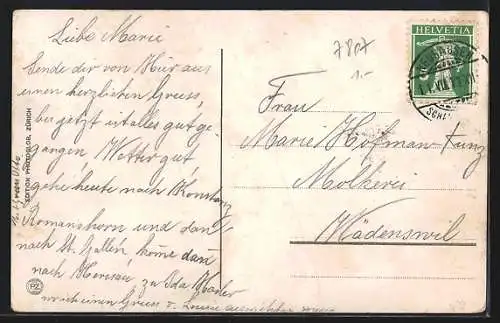 Liebe Marie
Sende dir von Hier aus
einen herzlichen Gruss,
bis jetzt ist alles gut ge-
gangen, Wetter gut
gehe heute nach Konstanz
Romanshorn und dan
nach St. Gallen, kome dan
nach Herisau zu Ida
noch einen Gruss
EDITION PHOTOGLOB, ZÜRICH
PZ
7807
1.-
HELVETIA
Frau
Marie Hofman-Kunz
Molkerei
Wädenswil